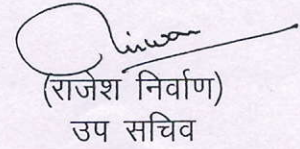 (राजेश निर्वाण)
उप सचिव